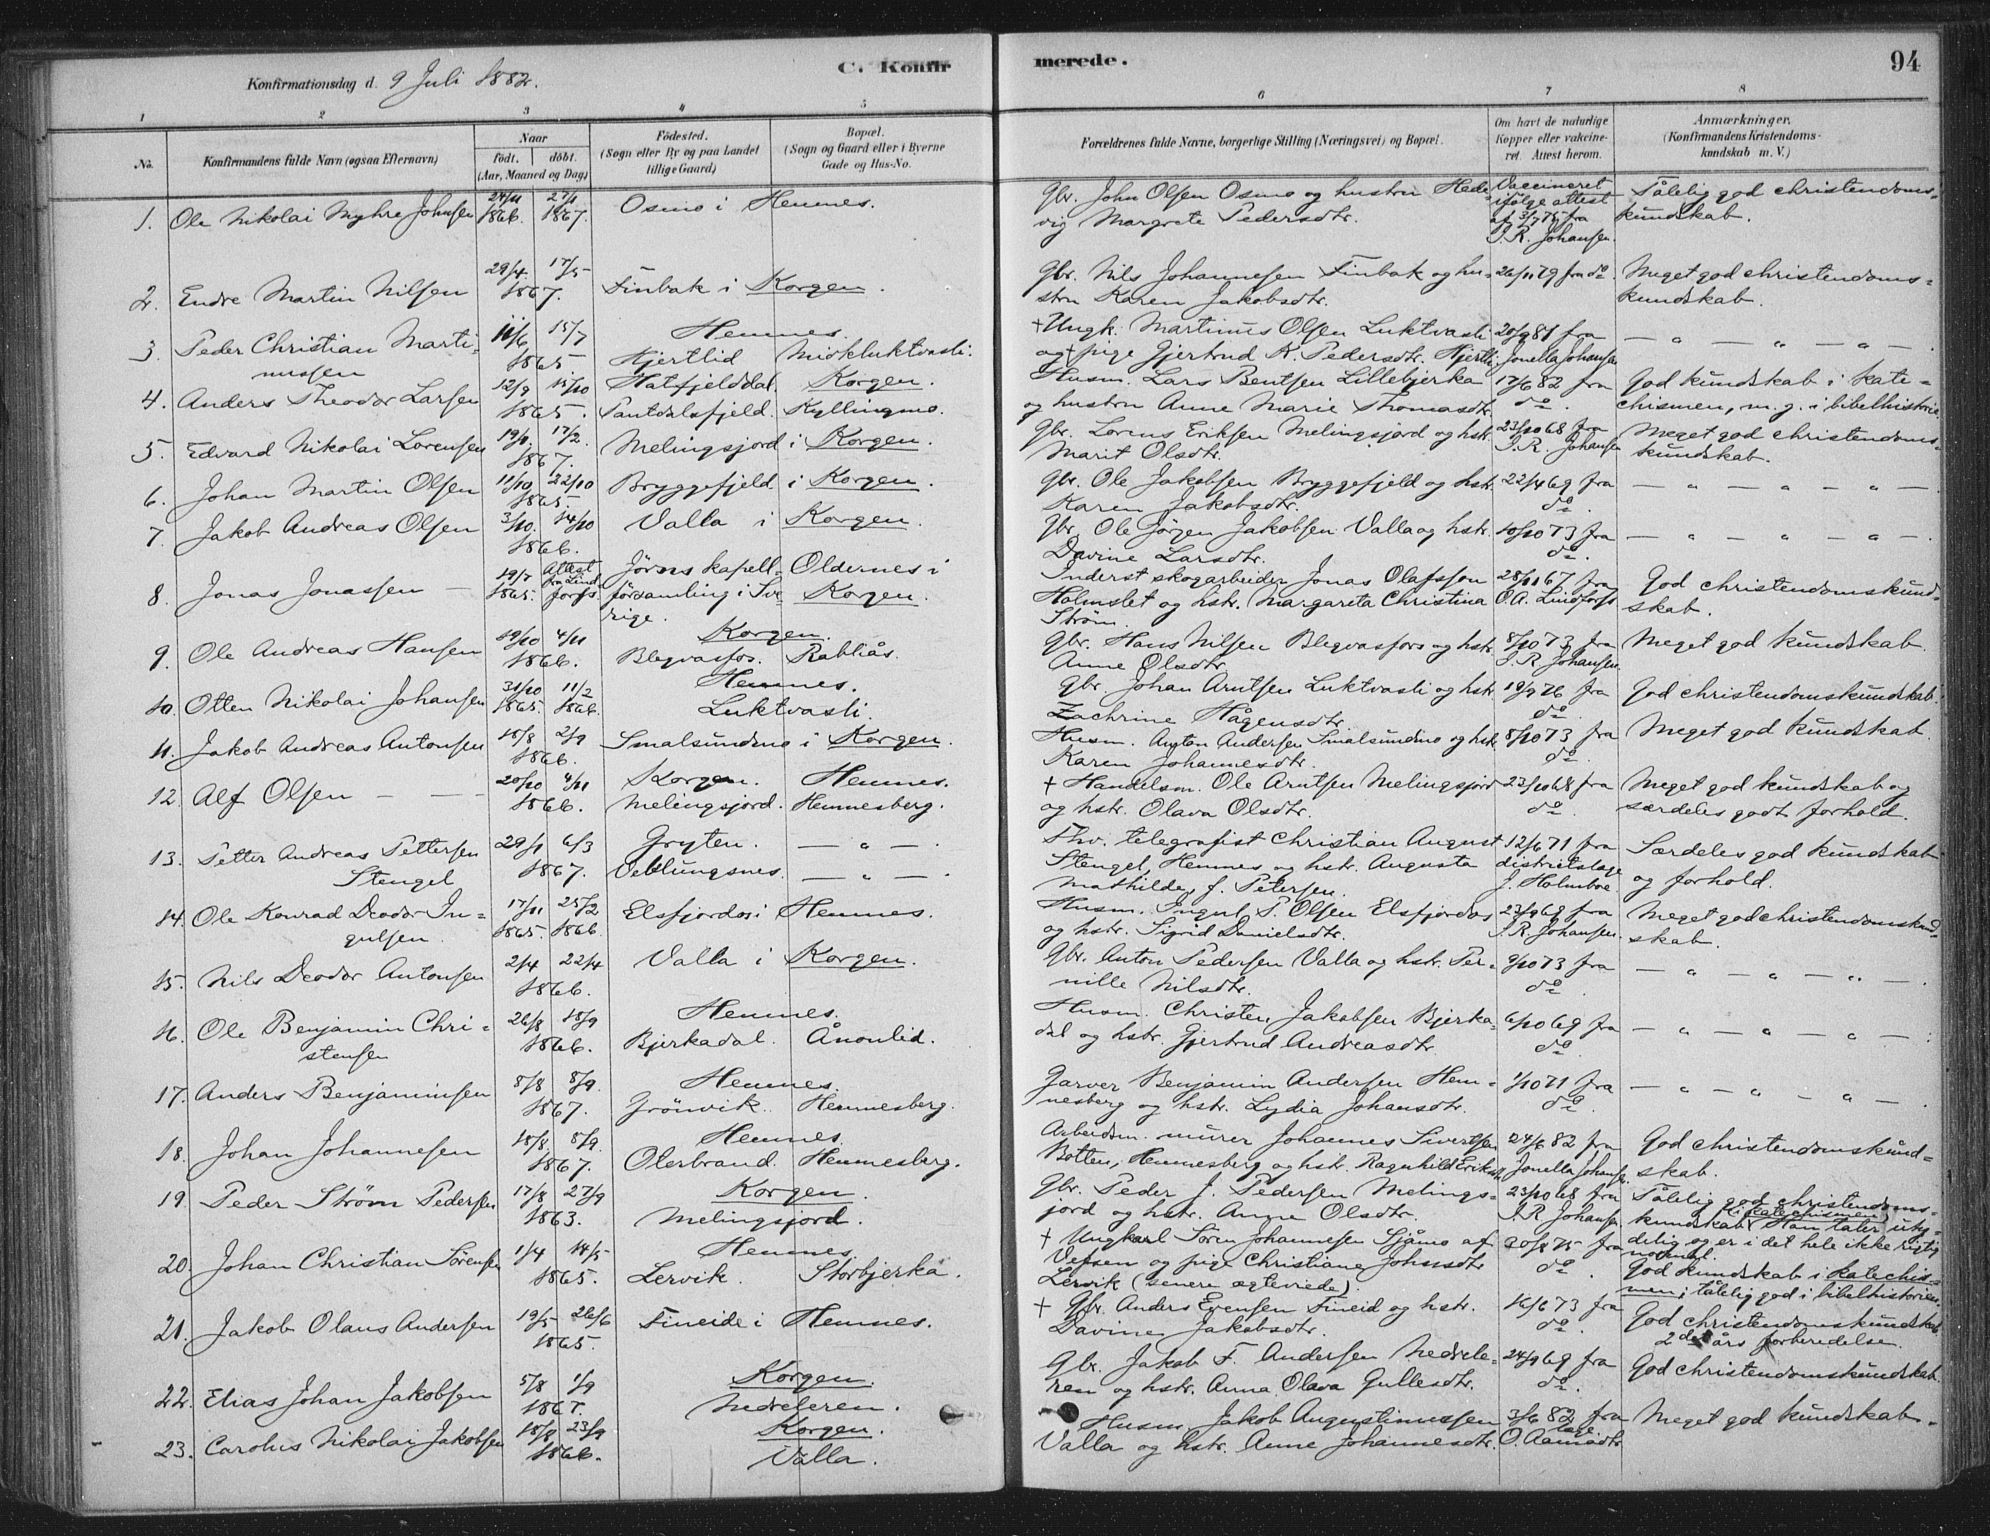 C. Konfirmerede. 94
Konfirmationsdag d. 9 Juli 1882.
1 2 3 4 5 6 7 8
No. Konfirmandens fulde Navn (ogsaa Efternavn) Naar født. døbt. (Aar, Maaned og Dag) Fødested. (Sogn eller By og paa Landet tillige Gaard) Bopæl. (Sogn og Gaard eller i Byerne Gade og Hus-No. Forældrenes fulde Navne, borgerlige Stilling (Næringsvei) og Bopæl. Om havt de naturlige Kopper eller vakcineret. Attest herom. Anmærkninger. (Konfirmandens Kristendomskundskab m. V.)
1. Ole Nikolai Myhre Johnsen 24/11 1866. 27/1 1867. Osmo i Hemnes. Gbr. John Olsen Osmo og hustru Hedevig Margrete Pedersdtr. Vaccineret ifølge attest af 3/7 75 fra I. R. Johansen. Tålelig god christendomskundskab.
2. Endre Martin Nilsen 29/4. 17/5 1867. Finbak i Korgen. Gbr. Nils Johannesen Finbak og hustru Karen Jakobsdtr. 26/11 79 fra do. Meget god christendomskundskab.
3. Peder Christian Martinussen 11/6 15/7 1865 Hemnes. Hjertlid Midtluktvasli. + Ungk. Martinus Olsen Luktvasli og + pige Gjertrud K. Pedersdtr. Hjertli. 20/9 81 fra Jonella Johansen — " — " — " —
4. Anders Theodor Larsen 12/9 15/10 1865. Hatfjelddal. Pantdalsfjeld. Korgen. Kyllingmo. Husm. Lars Bentsen Lillebjerka og hustru Anne Marie Thomasdtr. 17/6 82 fra do. God kundskab i katechismen, m. g. i bibelhistorie
5. Edvard Nikolai Lorensen 19/1. 17/2. 1867. Melingsjord i Korgen. Gbr. Lorens Eriksen Melingsjord og hstr. Marit Olsdtr. 23/10 68 fra I. R. Johansen Meget god christendomskundskab.
6. Johan Martin Olsen 11/10 22/10 1865. Bryggefjeld i Korgen. Gbr. Ole Jakobsen Bryggefjeld og hstr. Karen Jakobsdtr. 22/4 69 fra do. — " — " — " —
7. Jakob Andreas Olsen 3/10. 14/10 1866. Valla i Korgen. Gbr. Ole Jørgen Jakobsen Valla og hstr. Davine Larsdtr. 10/10 73 fra do. — " — " — " —
8. Jonas Jonassen — 19/7 1865. Attest fra Lindforfs. Jörns kapellförsamling i Sverige. Oldernes i Korgen. Inderst skogarbeider Jonas Olafsson Holmslet og hstr. Margareta Christina Strøm. 28/11 67 fra O. A. Lindforfs God christendomskundskab.
9. Ole Andreas Hansen 19/10 4/11 1866. Korgen. Blegvasfos. Rabliås. Gbr. Hans Nilsen Blegvasfors og hstr. Anne Olsdtr. 8/10 73 fra I. R Johansen. Meget god kundskab.
10. Otten Nikolai Johansen 31/10 1865. 11/2 1866. Hemnes. Luktvasli. Gbr. Johan Arntsen Luktvasli og hstr. Zachrine Hågensdtr. 19/9 76 fra do. God christendomskundskab.
11. Jakob Andreas Antonsen 18/8 2/9 1866. Smalsundmo i Korgen. Husm. Anton Andersen Smalsundmo og hstr. Karen Johannesdtr. 8/10 73 fra do. Meget god kundskab.
12. Alf Olsen — — — 20/10 4/11 1866. Korgen. Melingsjord. Hemnes. Hemnesberg. + Handelsm. Ole Arntsen Melingsjord og hstr. Olava Olsdtr. 23/10 68 fra do. Meget god kundskab og særdeles godt forhold.
13. Petter Andreas Pettersen Stengel 29/1 6/3 1867. Gryten. Veblungsnes. — " — . — " — . Fhv. telegrafist Christian August Stengel, Hemnes og hstr. Augusta Mathilde, f. Petersen. 12/6 71 fra distriktslæge J. Holmboe. Særdeles god kundskab og forhold.
14. Ole Konrad Deodor Ingulsen. 17/11 1865. 25/2 1866 Elsfjordos i Hemnes. Husm. Ingul P. Olsen Elsfjordos og hstr. Sigrid Danielsdtr. 23/9 69 fra I. R. Johansen. Meget god christendomskundskab.
15. Nils Deodor Antonsen 2/4 22/4 1866. Valla i Korgen. Gbr. Anton Pedersen Valla og hstr. Pernille Nilsdtr. 9/10 73 fra do. — " — " — " — .
16. Ole Benjamin Christensen 26/8 18/9 1866. Hemnes. Bjerkadal. Ånonlid. Husm. Christen Jakobsen Bjerkadal og hstr. Gjertrud Andreasdtr. 6/10 69 fra do. — " — " — " —
17. Anders Benjaminsen 8/8 8/9. 1867. Hemnes. Grönvik. Hemnesberg. Garver Benjamin Andersen Hemnesberg og hstr. Lydia Johansdtr. 1/10 71 fra do. — " — " — " — .
18. Johan Johannesen 18/8. 8/9. 1867. Hemnes. Oterbrand. Hemnesberg. Arbeidsm. murer Johannes Sivertsen Botten, Hemnesberg og hstr. Ragnhild Eriksd. 24/6 82 fra Jonella Johansen. God christendomskundskab.
19. Peder Strøm Pedersen 17/8 27/9 1863. Korgen. Melingsjord. Gbr. Peder J. Pedersen Melingsjord og hstr. Anne Olsdtr. 23/10 68 fra I. R. Johansen Tålelig god christendomskundskab (i katechismen) Han taler utydelig og er i det hele ikke rigtig normal.
20. Johan Christian Sørensen 1/4 14/5 1865. Hemnes. Lervik. Storbjerka. + Ungkarl Søren Johannesen Sjåmo af Vefsen og pige Christiane Johnsdtr Lervik (senere ægteviede). 30/8 75 fra do. God kundskab i katechismen; tålelig god i bibelhistorien.
21. Jakob Olaus Andersen 19/5 26/6 1865. Fineide i Hemnes. + Gbr. Anders Evensen Fineid og hstr. Davine Jakobsdtr. 16/6 73 fra do. God christendomskundskab. 2det års forberedelse.
22. Elias Johan Jakobsen 5/8 1/9 1867. Korgen. Nedreleren. Gbr. Jakob F. Andersen Nedreleren og hstr. Anna Olava Gullesdtr. 24/9 69 fra do. God christendomskundskab.
23. Carolus Nikolai Jakobsen 18/8 23/9 1866. Korgen. Valla. Husm. Jakob Augustinussen Valla og hstr. Anne Johannesdtr. 3/6 82 fra O. Aamodt. Meget god kundskab.